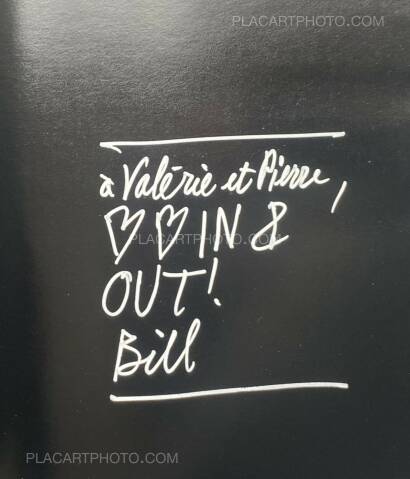 PLACARTPHOTO.COM
à Valérie et Pierre,
♡ ♡ IN &
PLACARTPHOTO.COM
OUT!
Bill
PLACARTPHOTO.COM